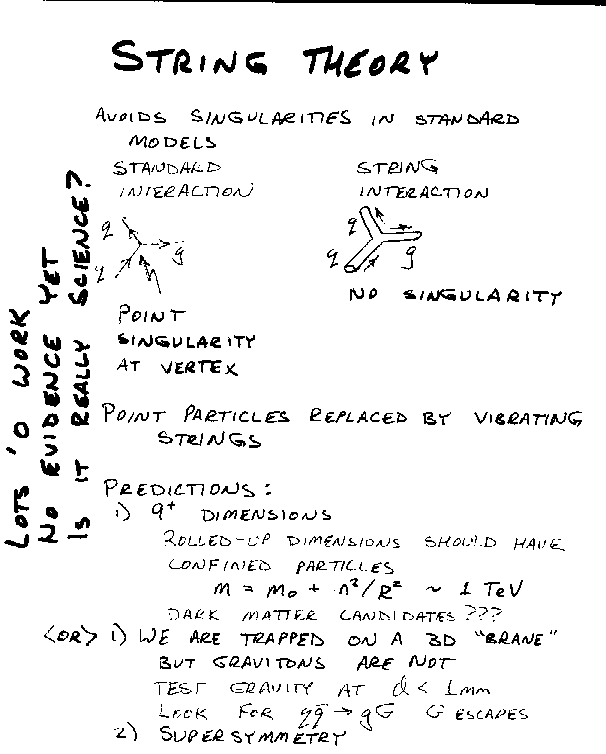 STRING THEORY
AVOIDS SINGULARITIES IN STANDARD
MODELS
STANDARD
INTERACTION
STRING
INTERACTION
q
q
g
q
q
g
POINT
SINGULARITY
AT VERTEX
NO SINGULARITY
POINT PARTICLES REPLACED BY VIBRATING
STRINGS
PREDICTIONS:
1) 9+ DIMENSIONS
ROLLED-UP DIMENSIONS SHOULD HAVE
CONFINED PARTICLES
m = m₀ + n²/R² ~ 1 TeV
DARK MATTER CANDIDATES ???
<OR> 1) WE ARE TRAPPED ON A 3D "BRANE"
BUT GRAVITONS ARE NOT
TEST GRAVITY AT d < 1mm
LOOK FOR qq̄ → gG G ESCAPES
2) SUPERSYMMETRY
LOTS 'O WORK
NO EVIDENCE YET
IS IT REALLY SCIENCE?